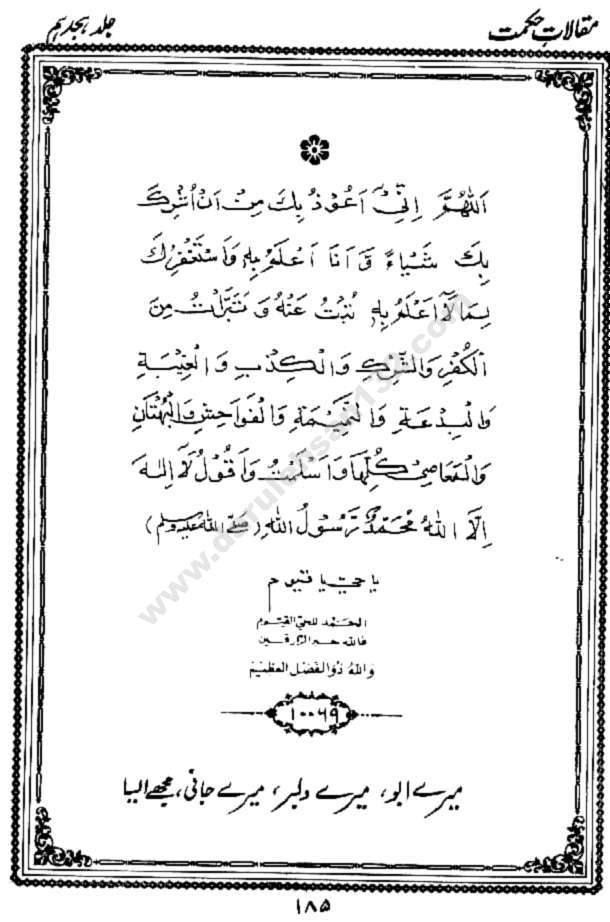 مقالاتِ حکمت
جلد ہجدہم
اَللّٰهُمَّ اِنِّیْ اَعُوْذُ بِكَ مِنْ اَنْ اُشْرِكَ
بِكَ شَيْئًاءً وَّ اَنَا اَعْلَمُ بِهٖ وَاَسْتَغْفِرُكَ
لِمَا لَاۤ اَعْلَمُ بِهٖ تُبْتُ عَنْهُ وَ تَبَرَّاْتُ مِنَ
الْكُفْرِ وَالشِّرْكِ وَالْكِذْبِ وَالْغِيْبَةِ
وَالْبِدْعَةِ وَالنَّمِيْمَةِ وَالْفَوَاحِشِ وَالْبُهْتَانِ
وَالْمَعَاصِیْ كُلِّهَا وَاَسْلَمْتُ وَاَقُوْلُ لَاۤ اِلٰهَ
اِلَّا اللّٰهُ مُحَمَّدٌ رَّسُوْلُ اللّٰهِ (صَلَّی اللّٰهُ عَلَيْهِ وَسَلَّم)
یا حیّ یا قیوم
الحَمْد للحیّ القیّوم
فاللہ خیر الرّازقین
وَاللهُ ذُو الفَضْلِ العَظِیْم
۱۰۰۶۹
میرے ابو، میرے دلبر، میرے جانی، مجھے ایسا
۱۸۵
www.darulehsan139.com